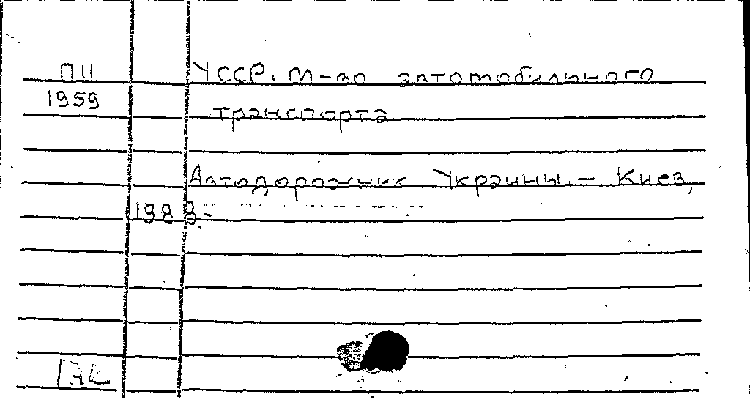 ПII УССР. М-во автомобильного
1959 транспорта
Автодорожник Украины. – Киев,
1983.-